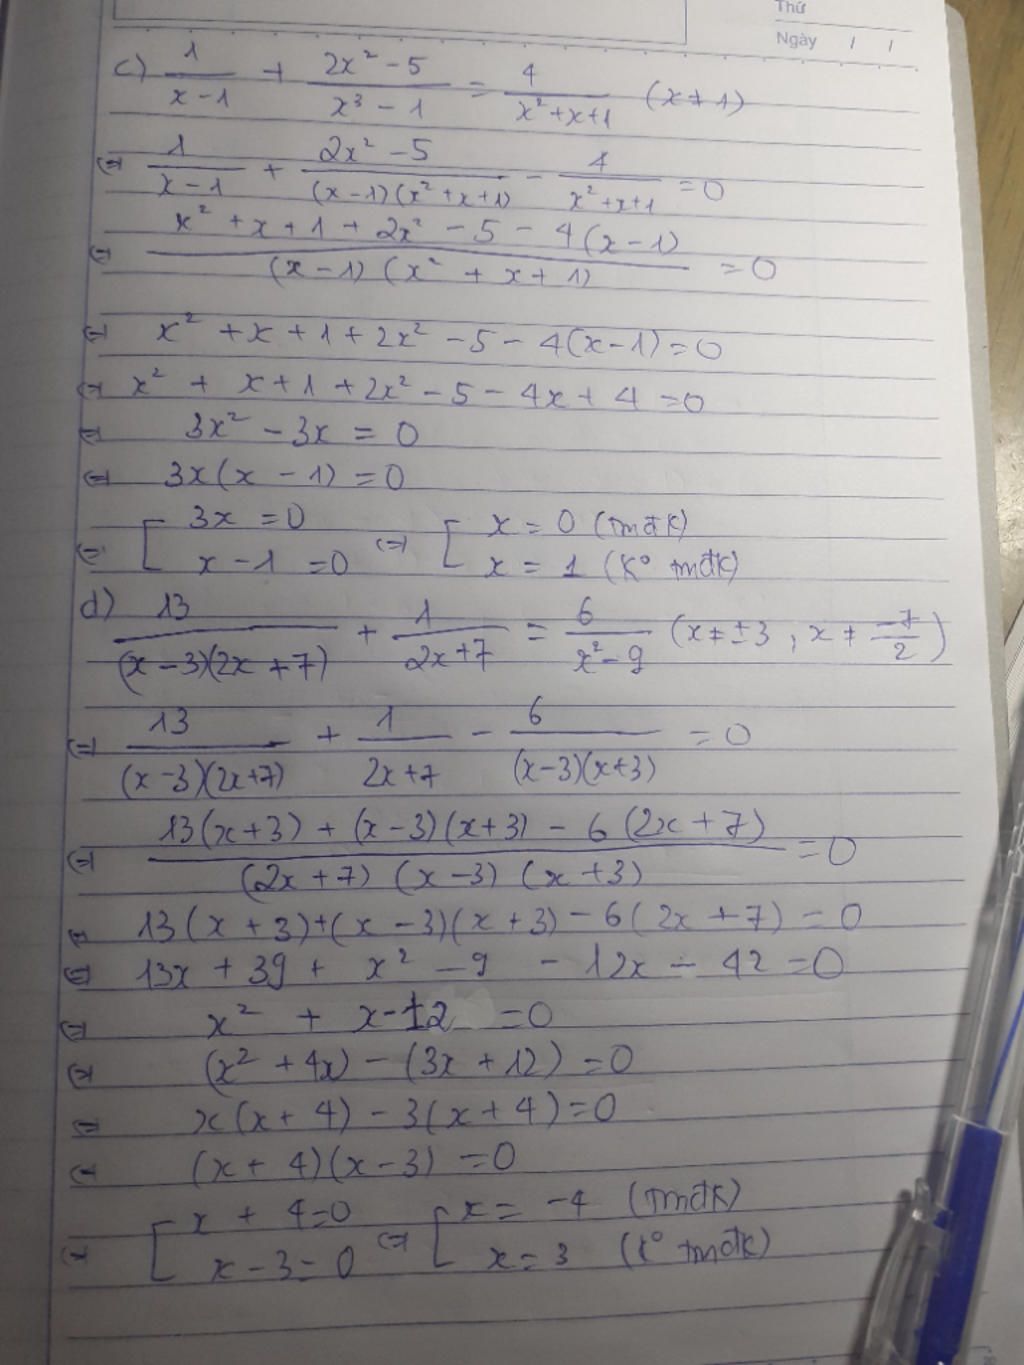 Thứ
Ngày / /
c) 1/(x-1) + (2x² - 5)/(x³ - 1) = 4/(x²+x+1) (x ≠ 1)
(=) 1/(x-1) + (2x² - 5)/((x-1)(x²+x+1)) - 4/(x²+x+1) = 0
(=) (x² + x + 1 + 2x² - 5 - 4(x-1))/((x-1)(x² + x + 1)) = 0
(=) x² + x + 1 + 2x² - 5 - 4(x-1) = 0
(=) x² + x + 1 + 2x² - 5 - 4x + 4 = 0
(=) 3x² - 3x = 0
(=) 3x(x - 1) = 0
(=) [ 3x = 0 (=) [ x = 0 (tmđk)
x - 1 = 0 x = 1 (k° tmđk)
d) 13/((x-3)(2x+7)) + 1/(2x+7) = 6/(x²-9) (x ≠ ±3, x ≠ -7/2)
(=) 13/((x-3)(2x+7)) + 1/(2x+7) - 6/((x-3)(x+3)) = 0
(=) (13(x+3) + (x-3)(x+3) - 6(2x+7))/((2x+7)(x-3)(x+3)) = 0
(=) 13(x+3)+(x-3)(x+3) - 6(2x+7) = 0
(=) 13x + 39 + x² - 9 - 12x - 42 = 0
(=) x² + x - 12 = 0
(=) (x² + 4x) - (3x + 12) = 0
(=) x(x + 4) - 3(x + 4) = 0
(=) (x + 4)(x - 3) = 0
(=) [ x + 4 = 0 (=) [ x = -4 (tmđk)
x - 3 = 0 x = 3 (k° tmđk)